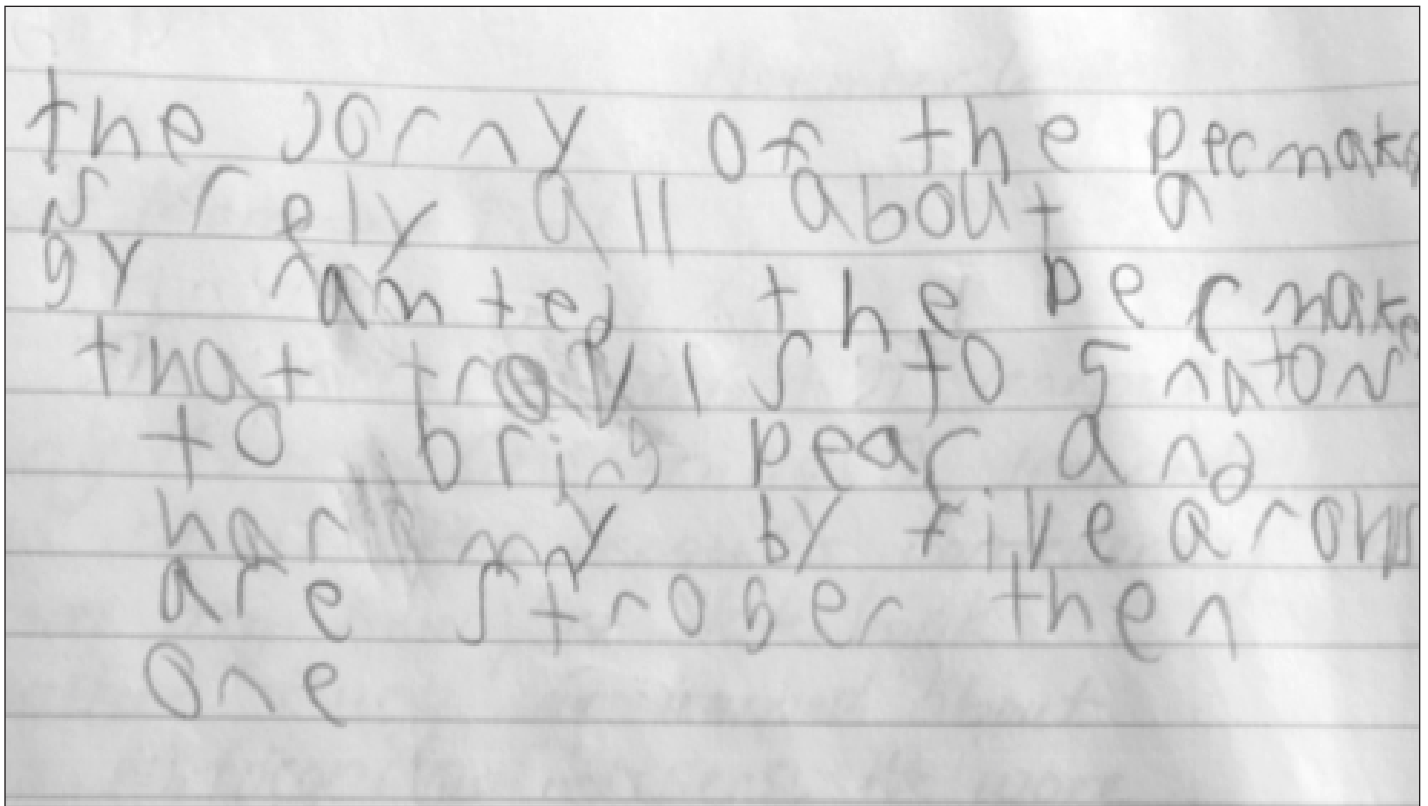 the jorny of the pecmake
is rely all about a
gy namted the permake
that travls to 5 natons
to bring pear and
har my by five arows
are stroger then
one